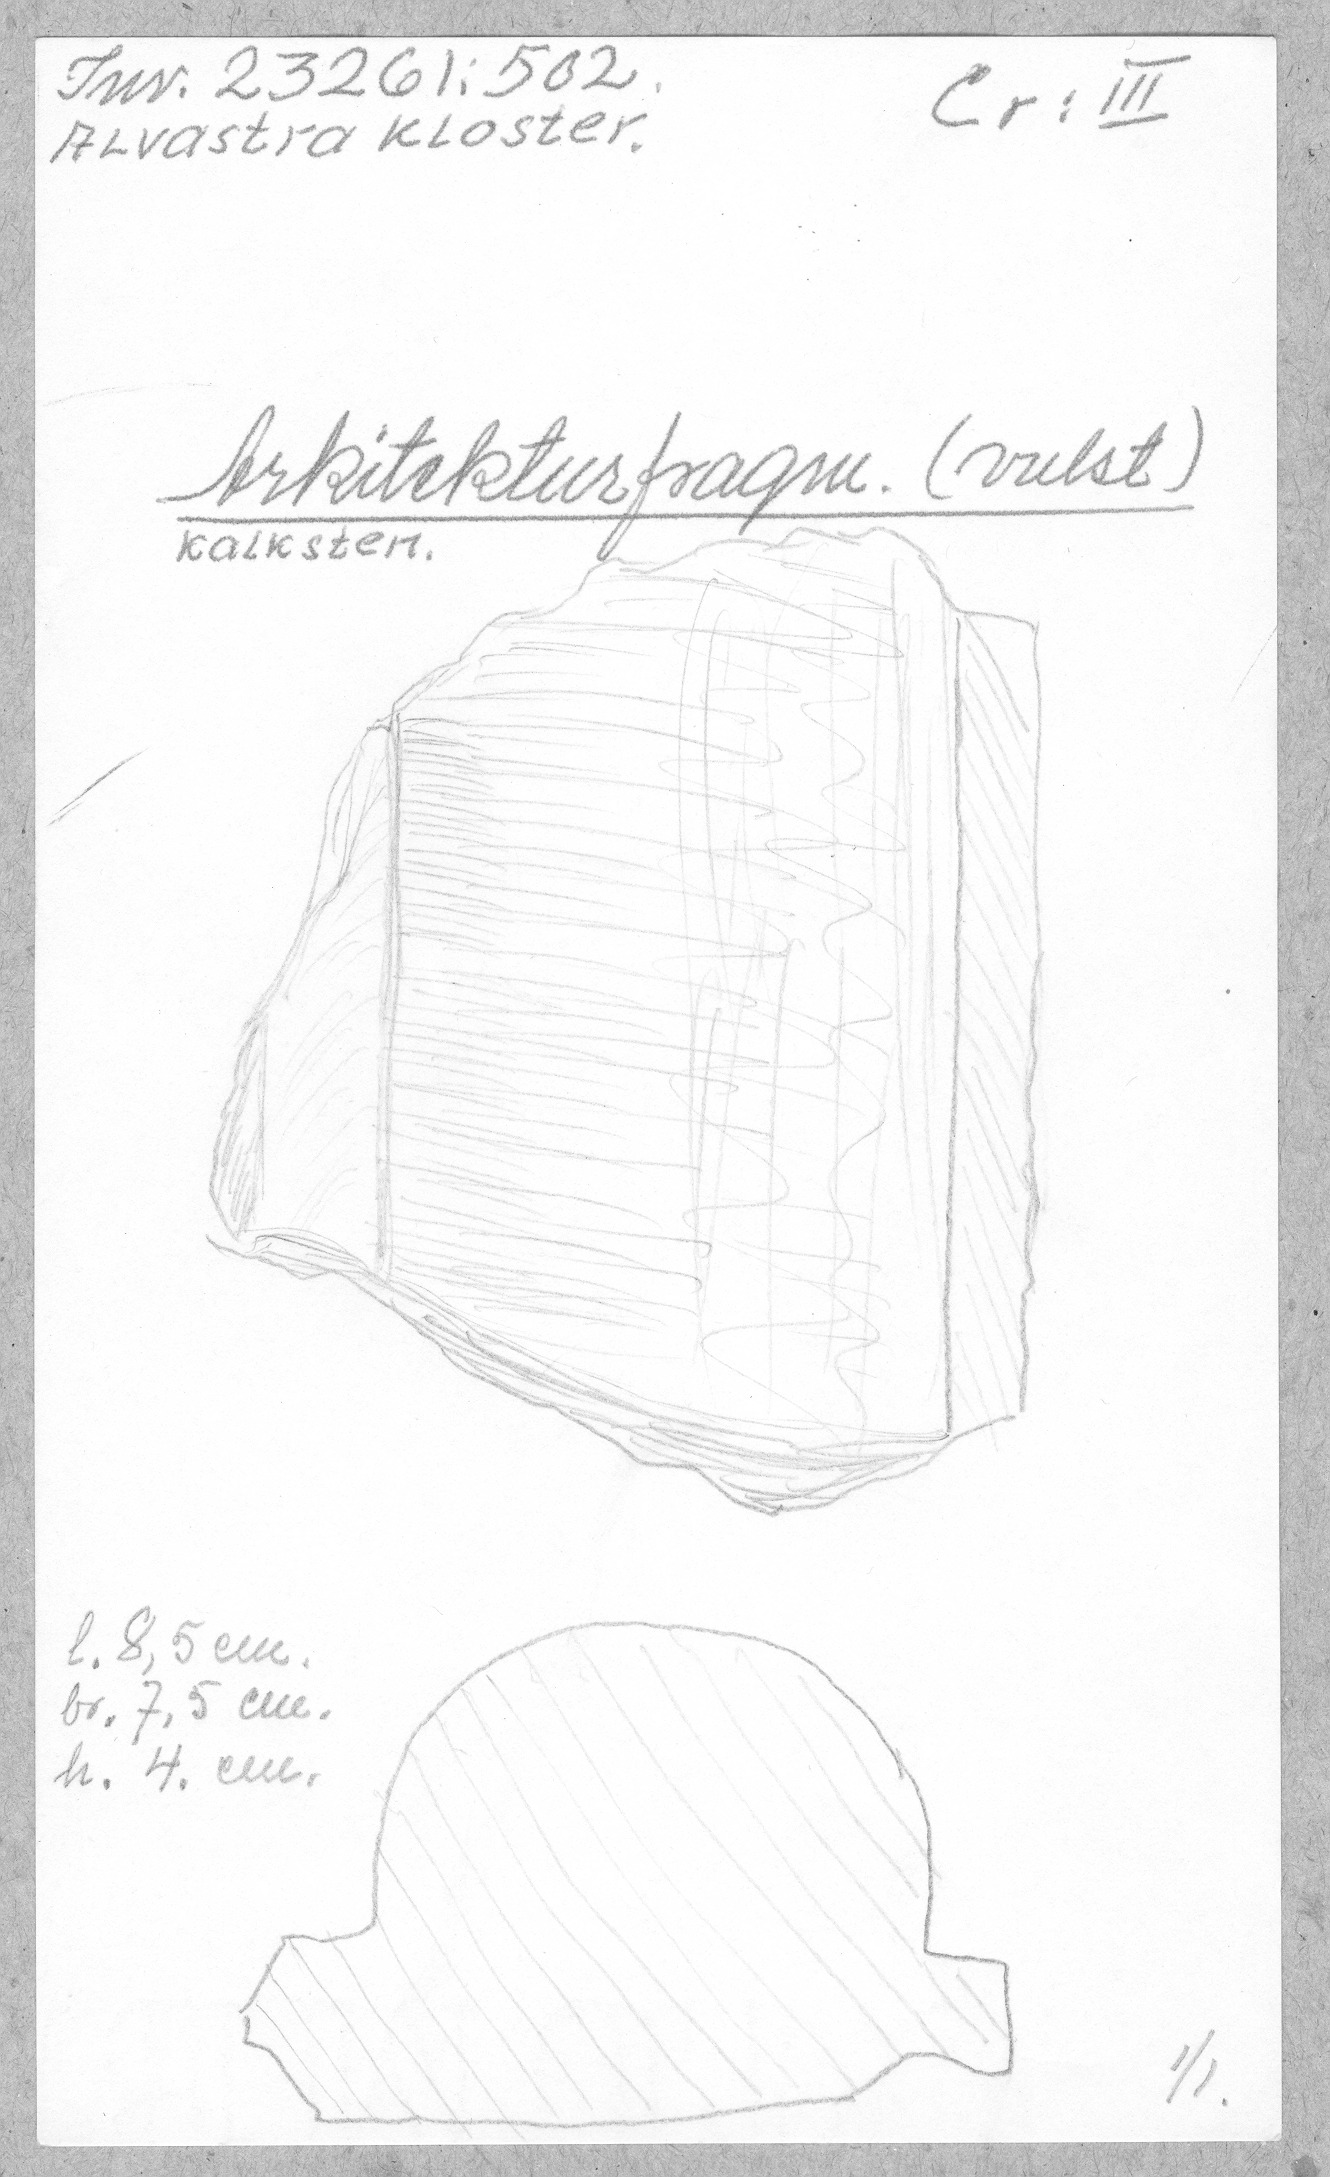 Inv. 23261:502.
Cr: III
Alvastra kloster.
Arkitekturfragm. (vulst)
kalksten.
l. 8,5 cm.
br. 7,5 cm.
h. 4. cm.
1/1.